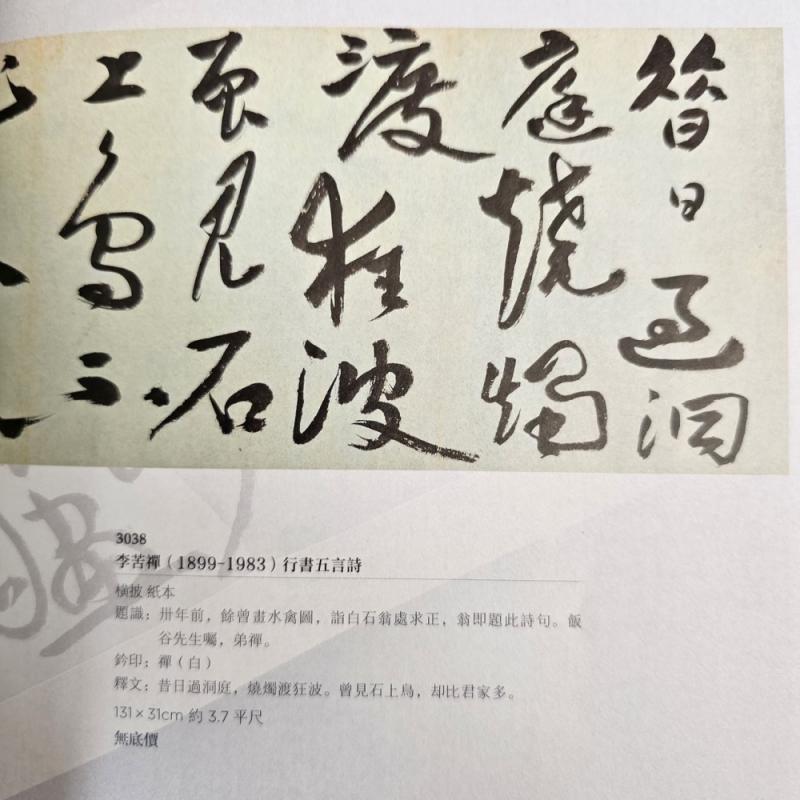 昔日過洞
庭燒燭
渡狂波
曾見石
上鳥
3038
李苦禪（1899-1983）行書五言詩
橫披 紙本
題識：卅年前，餘曾畫水禽圖，詣白石翁處求正，翁即題此詩句。飯
谷先生囑，弟禪。
鈐印：禪（白）
釋文：昔日過洞庭，燒燭渡狂波。曾見石上鳥，却比君家多。
131×31cm 約 3.7 平尺
無底價